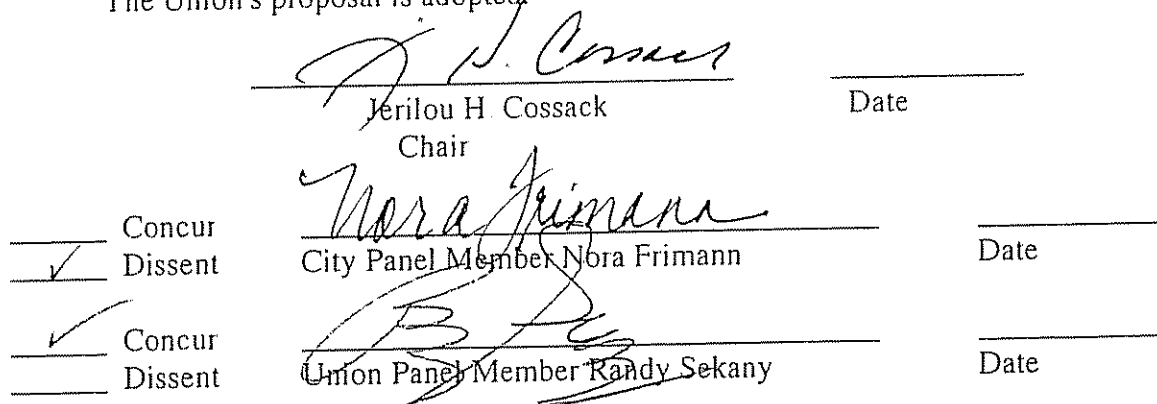 The Union's proposal is adopted
J. H. Cossack
Jerilou H. Cossack Date
Chair
Nora Frimann
Concur
✓ Dissent City Panel Member Nora Frimann Date
✓ Concur
Dissent Union Panel Member Randy Sekany Date